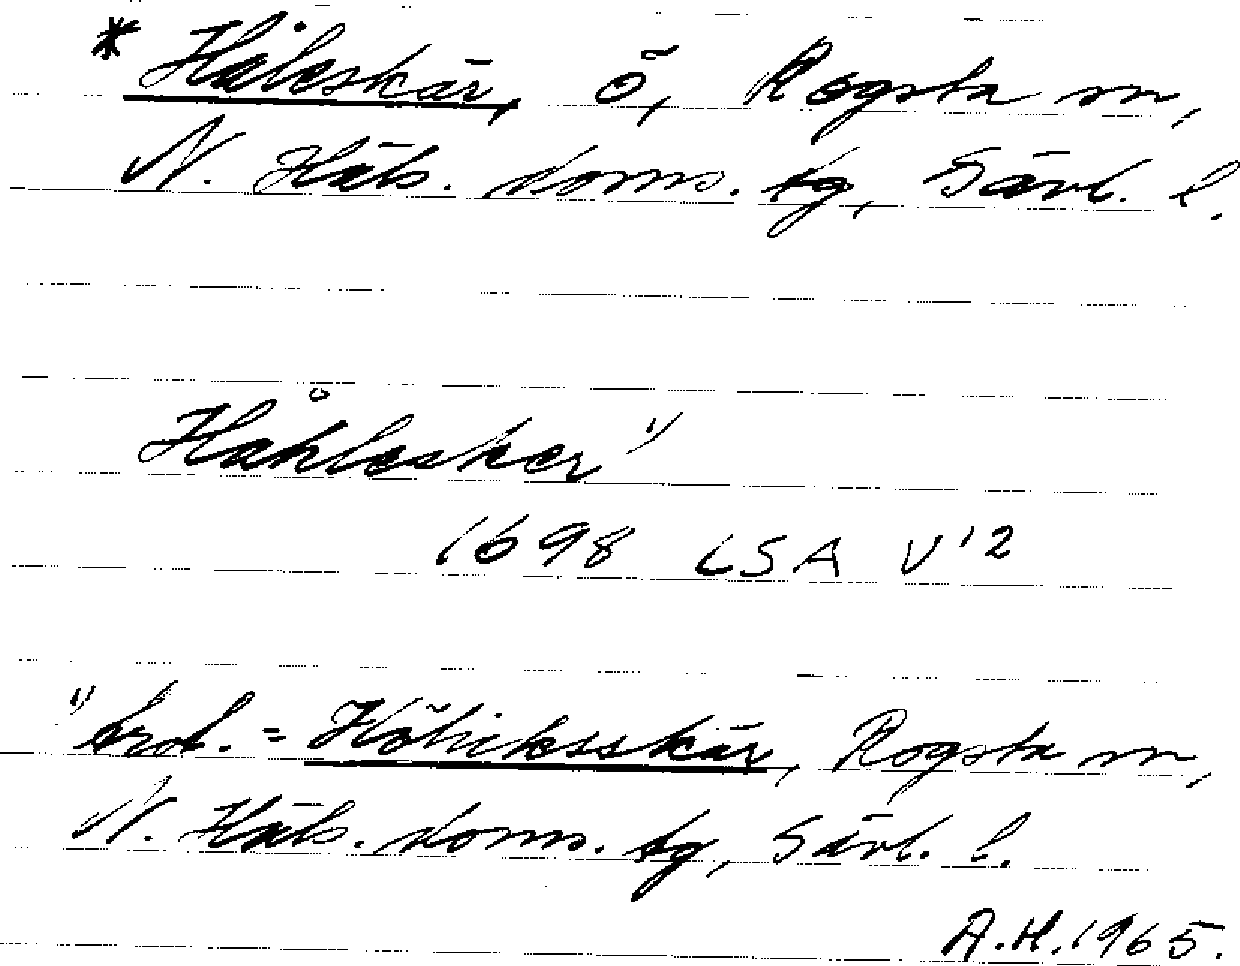 * Håleskär, ö, Rogsta sn,
N. Häls. doms. tg, Gävl. l.
Håhlesker 1)
1698 LSA V12
1) trol. = Hölicksskär, Rogsta sn,
N. Häls. doms. tg, Gävl. l.
A.H. 1965.